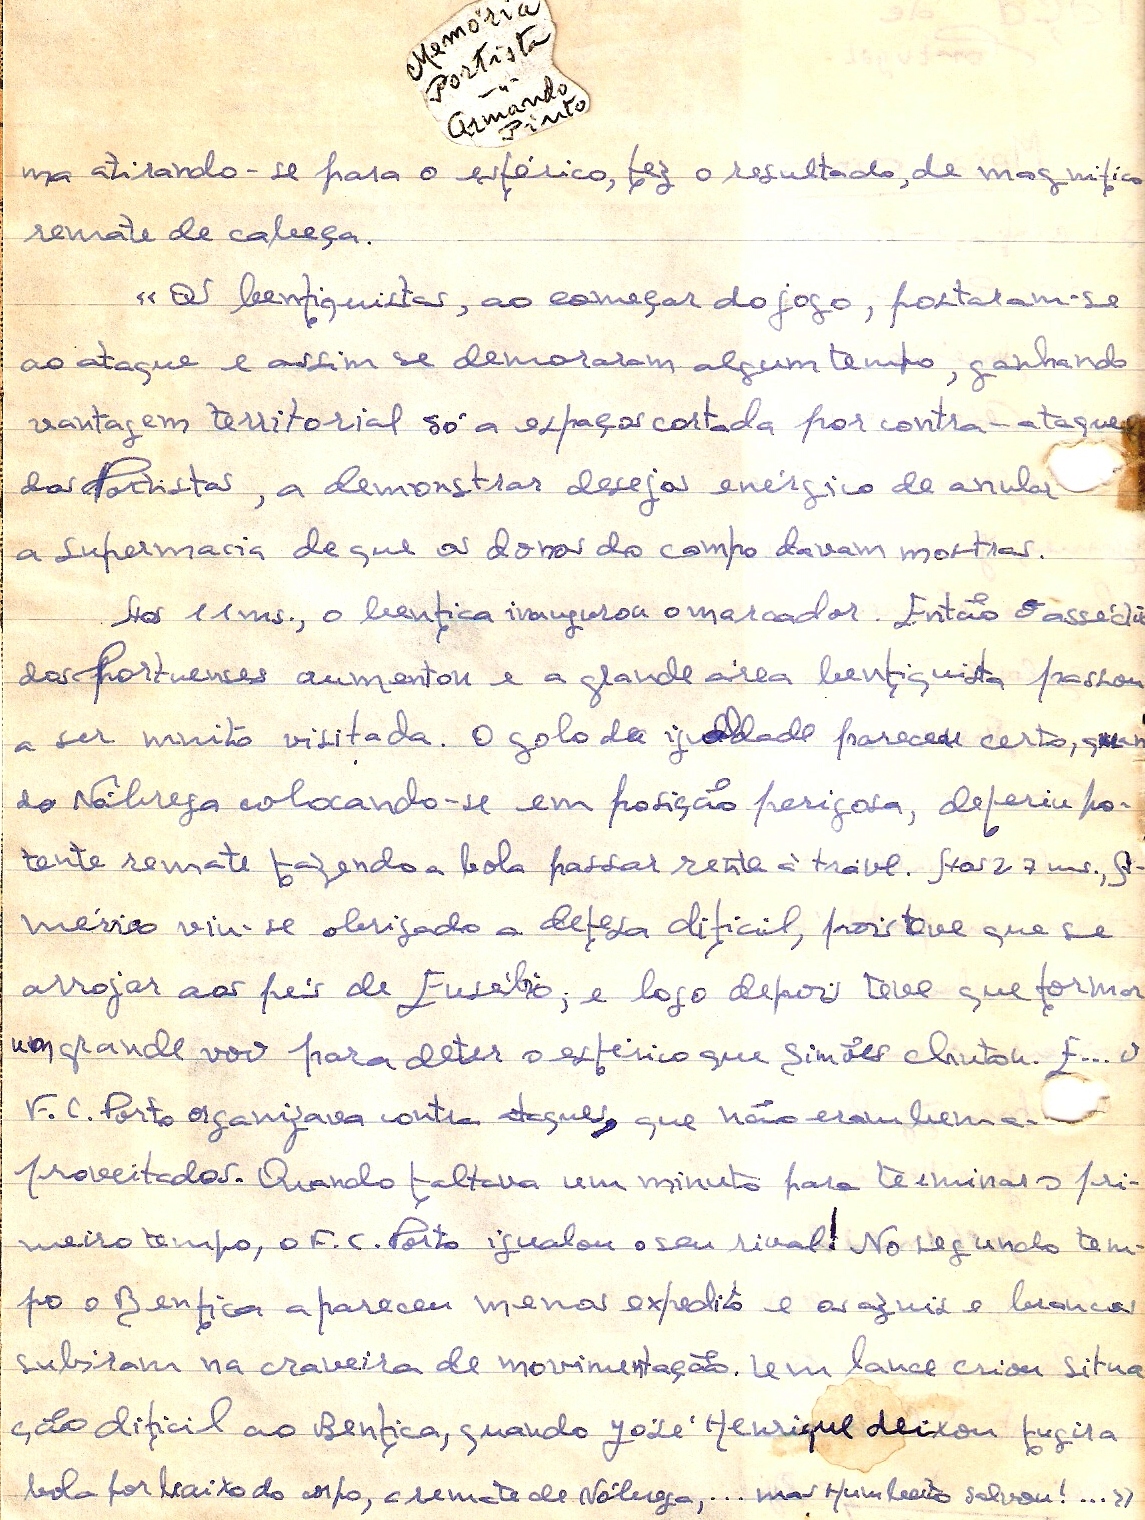 Memória
Portista
-"-
Armando
Pinto
ma atirando-se para o esférico, fez o resultado, de magnífico
remate de cabeça.
"Os benfiquistas, ao começar do jogo, postaram-se
ao ataque e assim se demoraram algum tempo, ganhando
vantagem territorial só a espaços cortada por contra-ataques
dos Portistas, a demonstrar desejos enérgico de anular
a supermacia de que os donos do campo davam mostras.
Aos 11 ms., o benfica inaugurou o marcador. Então o assédio
dos portuenses aumentou e a grande área benfiquista passou
a ser muito visitada. O golo da igualdade pareceu certo, quan
do Nóbrega colocando-se em posição perigosa, deferiu po-
tente remate fazendo a bola passar rente à trave. Aos 27 ms., A-
mérico viu-se obrigado a defesa difícil, pois teve que se
arrojar aos pés de Eusébio; e logo depois teve que formar
um grande voo para deter o esférico que Simões chutou. E... o
F. C. Porto organizava contra ataques, que não eram bem a-
proveitados. Quando faltava um minuto para terminar o pri-
meiro tempo, o F. C. Porto igualou o seu rival! No segundo tem-
po o Benfica apareceu menos expedito e os azuis e brancos
subiram na craveira de movimentação. Um lance criou situa
ção difícil ao Benfica, quando José Henrique deixou fugir a
bola por baixo do corpo, a remate de Nóbrega,... mas Humberto salvou!...»